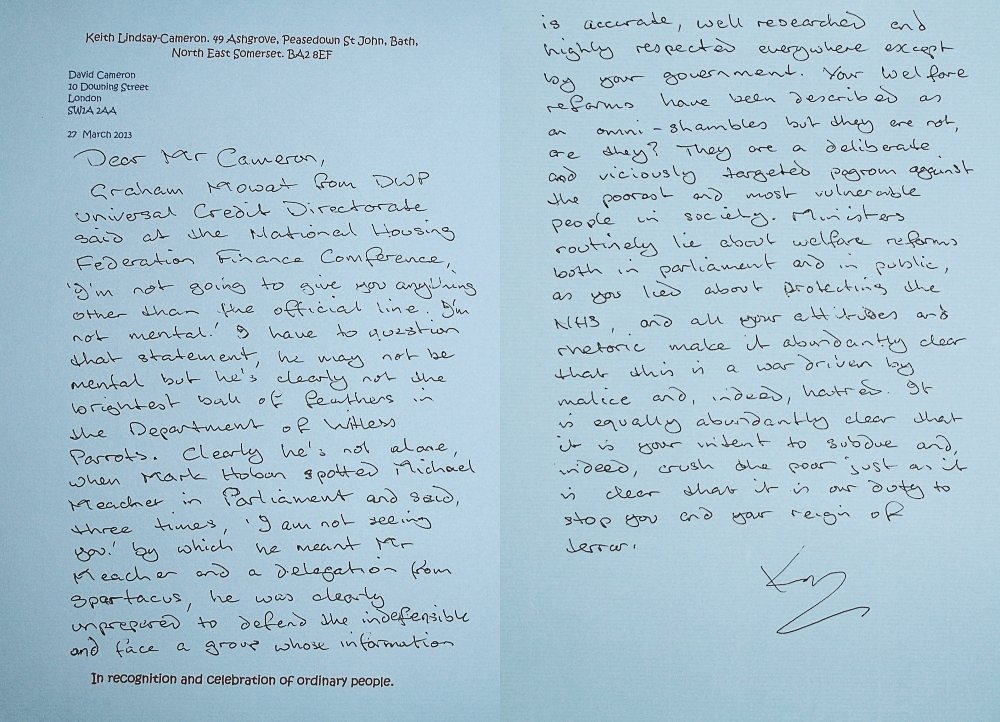 Keith Lindsay-Cameron. 49 Ashgrove, Peasedown St John, Bath,
North East Somerset. BA2 8EF
David Cameron
10 Downing Street
London
SW1A 2AA
27 March 2013
Dear Mr Cameron,
Graham Mowat from DWP
Universal Credit Directorate
said at the National Housing
Federation Finance Conference,
'I'm not going to give you anything
other than the official line. I'm
not mental.' I have to question
that statement, he may not be
mental but he's clearly not the
brightest ball of feathers in
the Department of Witless
Parrots. Clearly he's not alone,
when Mark Hoban spotted Michael
Meacher in Parliament and said,
three times, 'I am not seeing
you.' by which he meant Mr
Meacher and a delegation from
Spartacus, he was clearly
unprepared to defend the indefensible
and face a group whose information
In recognition and celebration of ordinary people.
is accurate, well researched and
highly respected everywhere except
by your government. Your welfare
reforms have been described as
an omni-shambles but they are not,
are they? They are a deliberate
and viciously targeted pogrom against
the poorest and most vulnerable
people in society. Ministers
routinely lie about welfare reforms
both in parliament and in public,
as you lied about protecting the
NHS, and all your attitudes and
rhetoric make it abundantly clear
that this is a war driven by
malice and, indeed, hatred. It
is equally abundantly clear that
it is your intent to subdue and,
indeed, crush the poor just as it
is clear that it is our duty to
stop you and your reign of
terror.